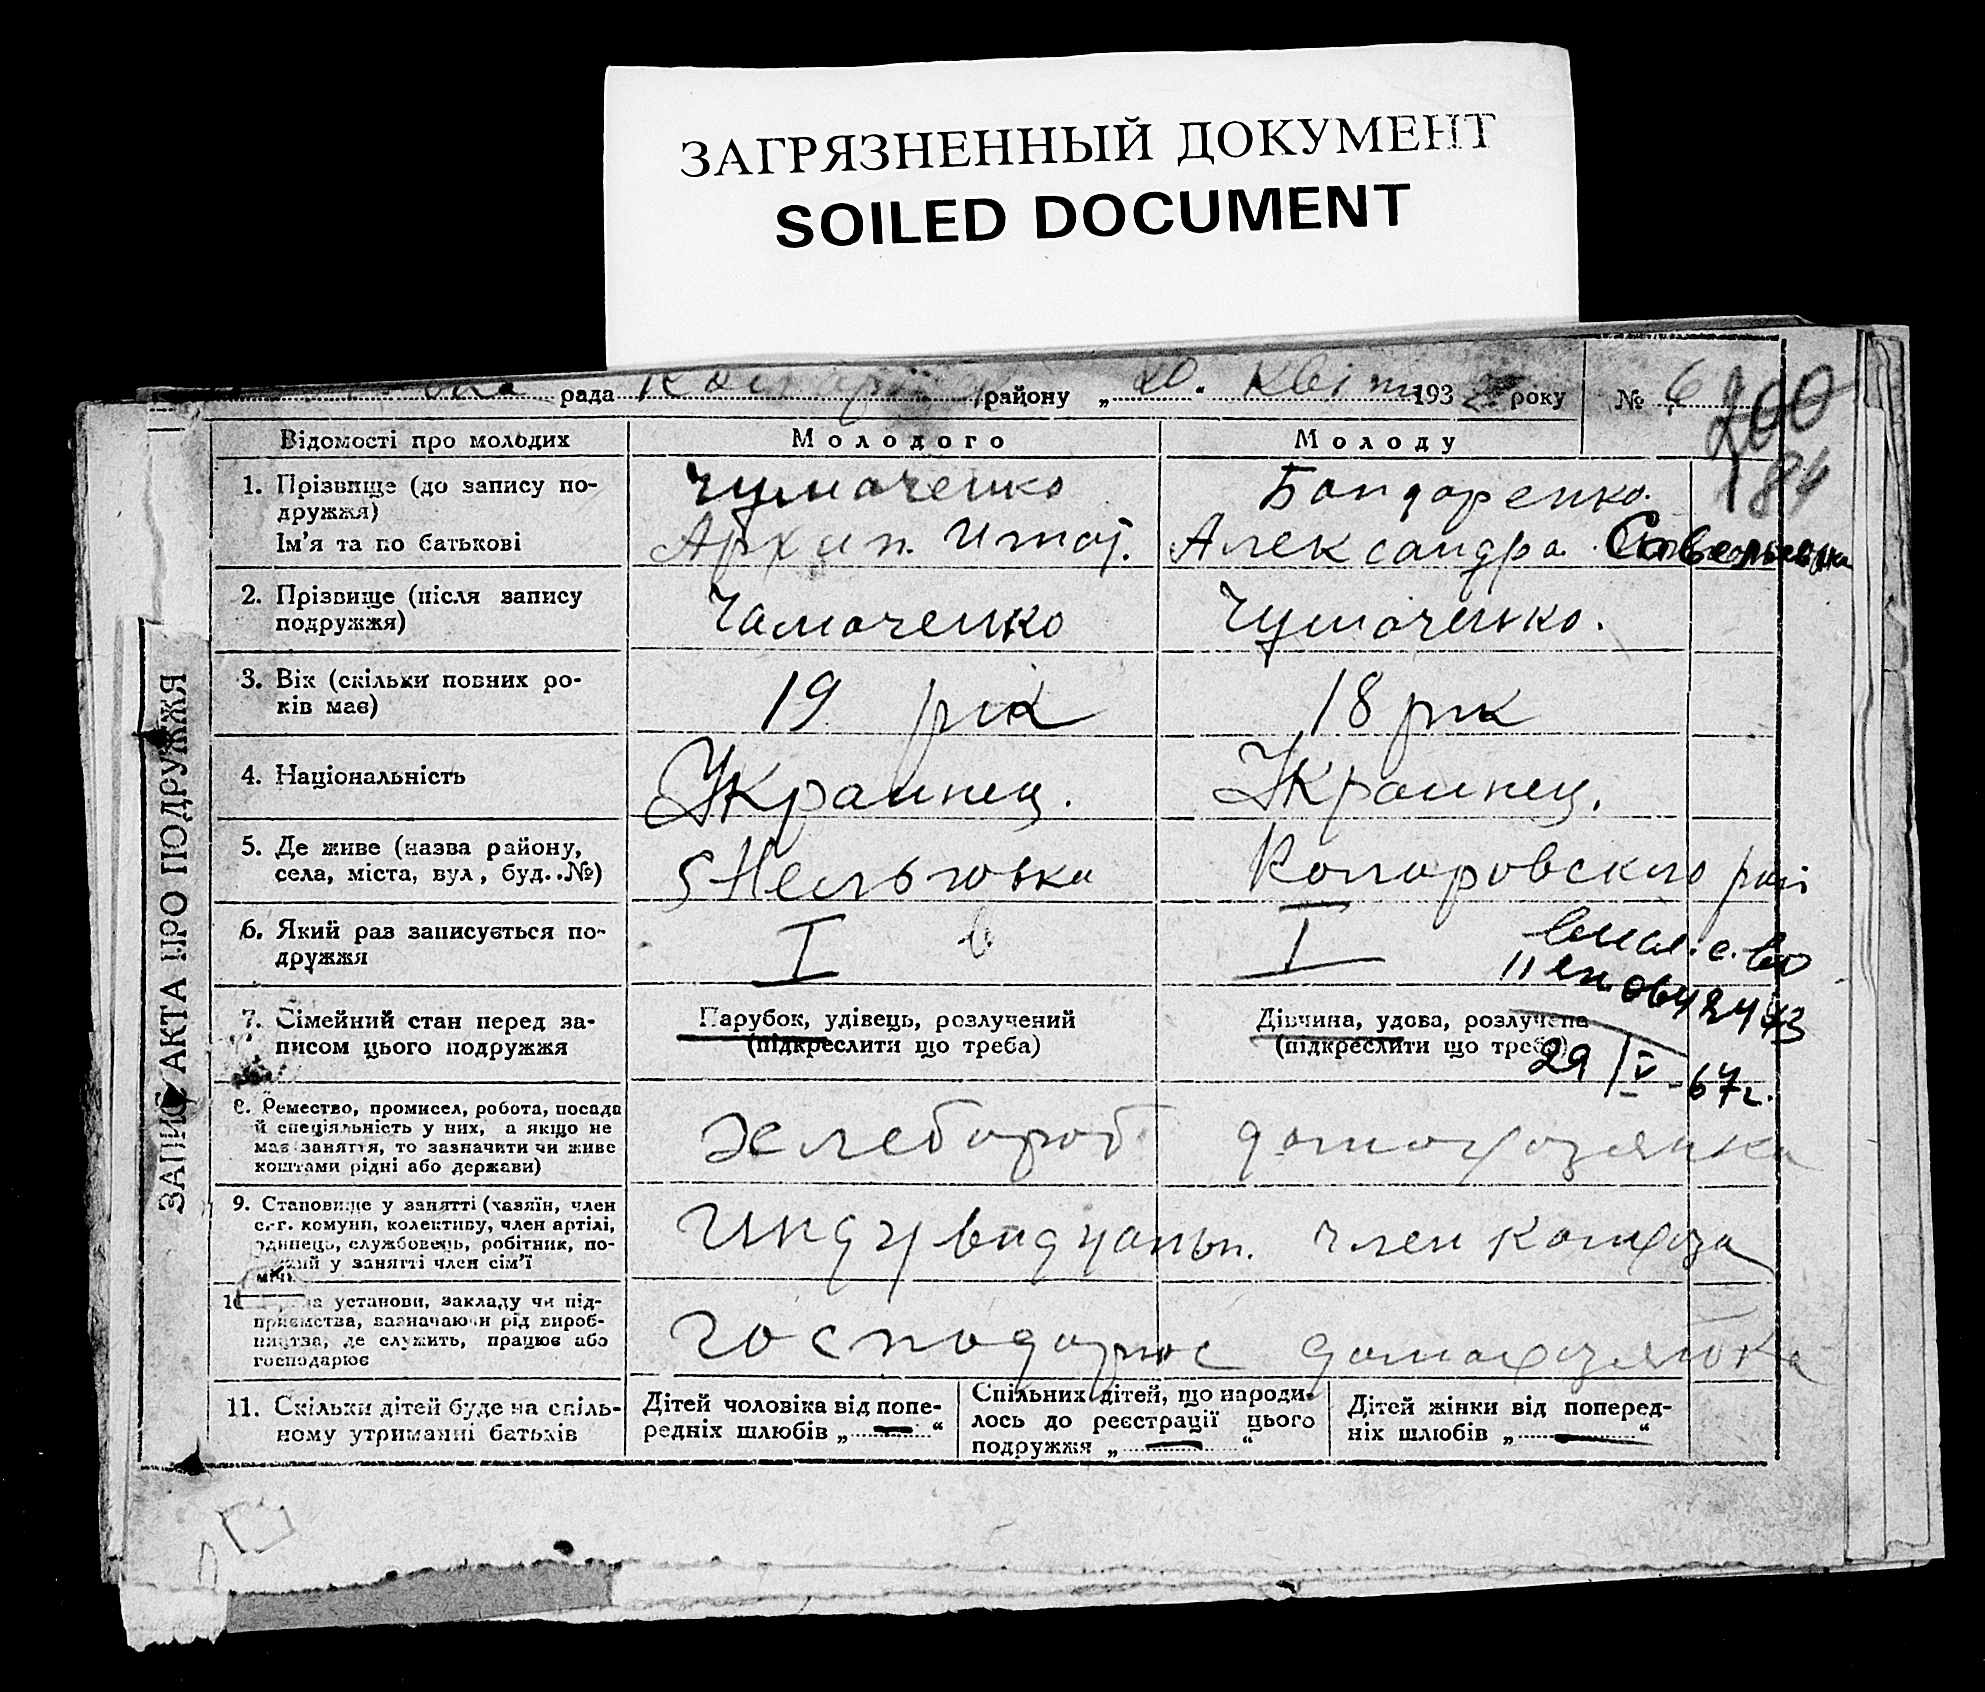 ЗАГРЯЗНЕННЫЙ ДОКУМЕНТ
SOILED DOCUMENT
рада району „20." Квітн 193 року № 6
200
184
ЗАПИС АКТА ПРО ПОДРУЖЖЯ
Відомості про молодих Молодого Молоду
1. Прізвище (до запису по-
дружжя)
Чумаченко Бондаренко.
Ім'я та по батькові Архип. Александра Савельевна
2. Прізвище (після запису
подружжя)
Чамаченко Чумаченко.
3. Вік (скільки повних ро-
ків має)
19 рік 18 рик
4. Національність Украинец. Украинец.
5. Де живе (назва району,
села, міста, вул, буд. №)
Нельговка Коларовского рай
6. Який раз записується по-
дружжя
I I
7. Сімейний стан перед за-
писом цього подружжя
Парубок, удівець, розлучений
(підкреслити що треба)
Дівчина, удова, розлучена
(підкреслити що треба)
29/V-67г.
8. Ремество, промисел, робота, посада
й спеціяльність у них, а якщо не
має заняття, то зазначити чи живе
коштами рідні або держави)
хлебороб домохозянка
9. Становище у занятті (хазяїн, член
с.-г. комуни, колективу, член артілі,
одинець, службовець, робітник, по-
у занятті член сім'ї
индувидуальн. член колхоза
10 установи, закладу чи під-
приємства, зазначаючи рід вироб-
ництва, де служить, працює або
господарює
господарюе домахозяюка
11. Скільки дітей буде на спіль-
ному утриманні батьків
Дітей чоловіка від попе-
редніх шлюбів „—"
Спільних дітей, що народи-
лось до реєстрації цього
подружжя „—"
Дітей жінки від поперед-
ніх шлюбів „—"